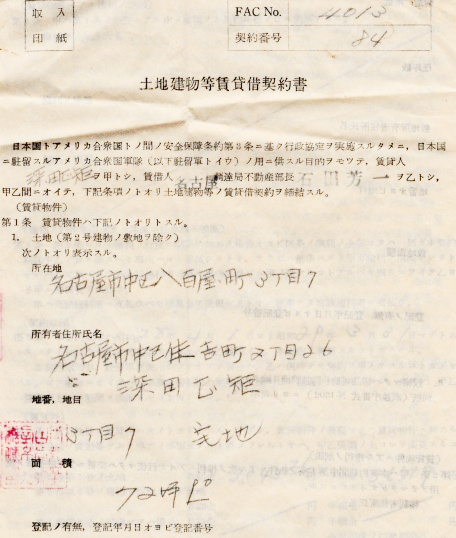 収入
印紙
FAC No. 4013
契約番号 84
土地建物等賃貸借契約書
日本国トアメリカ合衆国トノ間ノ安全保障条約第3条ニ基ク行政協定ヲ実施スルタメニ，日本国
ニ駐留スルアメリカ合衆国軍隊（以下駐留軍トイウ）ノ用ニ供スル目的ヲモツテ，賃貸人
ヲ甲トシ，賃借人 名古屋 調達局不動産部長 石田芳一 ヲ乙トシ，
甲乙間ニオイテ，下記条項ノトオリ土地建物等ノ賃貸借契約ヲ締結スル。
（賃貸物件）
第1条 賃貸物件ハ下記ノトオリトスル。
1. 土地（第2号建物ノ敷地ヲ除ク）
次ノトオリ表示スル。
所在地
名古屋市中区八百屋町3丁目7
所有者住所氏名
名古屋市中区住吉町2丁目26
深田
地番，地目
3丁目7 宅地
面積
72坪
登記ノ有無，登記年月日オヨビ登記番号